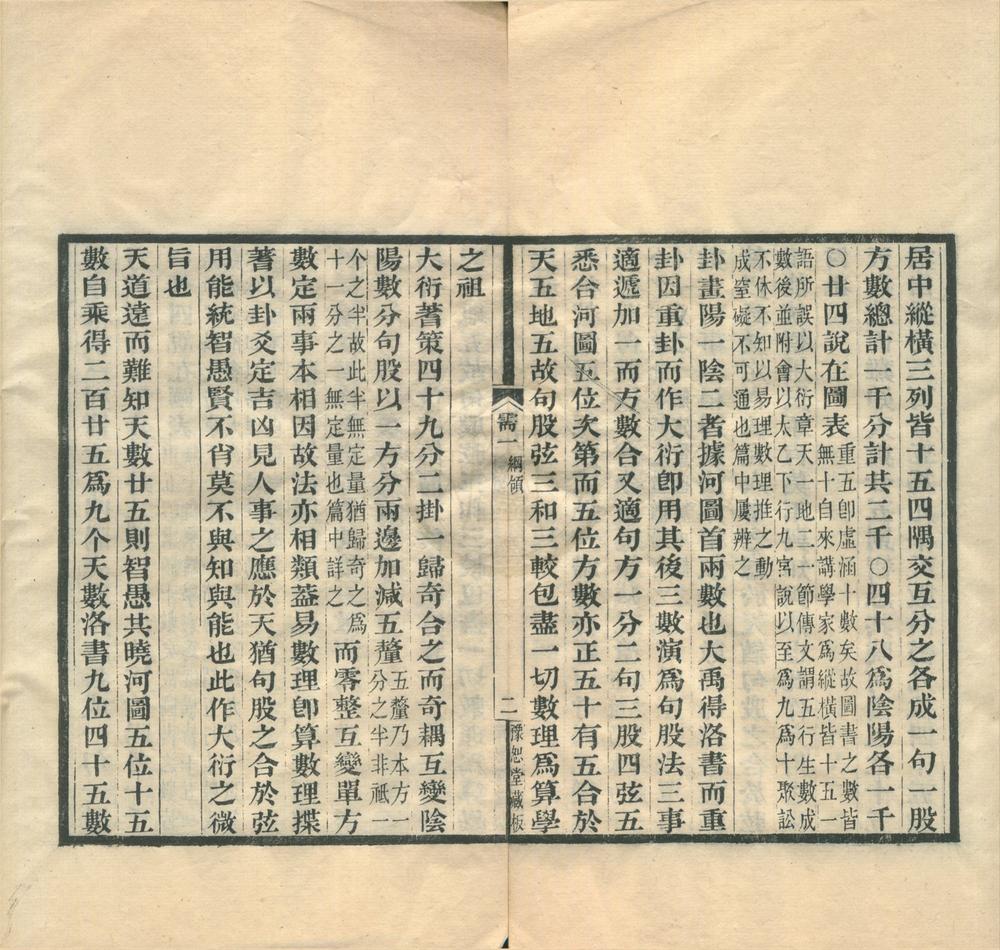 居中縱橫三列皆十五四隅交互分之各成一句一股
方數總計一千分計其二千〇四十八爲陰陽各一千
〇廿四說在圖表重五卽虛涵十數矣故圖書之數皆
無十自來講學家爲縱橫皆十五一
語所誤以大衍章天一地二一節傳文謂五行生數成
數後並附會以太乙下行九宮說以至爲九爲十聚訟
不休不知以易理數理推之動
成窒礙不可通也篇中屢辨之
卦畫陽一陰二者據河圖首兩數也大禹得洛書而重
卦因重卦而作大衍卽用其後三數演爲句股法三事
適遞加一而方數合又適句方一分二句三股四弦五
悉合河圖五位次第而五位方數亦正五十有五合於
天五地五故句股弦三和三較包盡一切數理爲算學
需一
綱領
二
豫恕堂藏板
之祖
大衍蓍策四十九分二掛一歸奇合之而奇耦互變陰
陽數分句股以一方分兩邊加減五釐五釐乃本方一
分之半非祗一
个之半故此半無定量猶歸奇之爲
十一分之一無定量也篇中詳之而零整互變單方
數定兩事本相因故法亦相類葢易數理卽算數理揲
蓍以卦爻定吉凶見人事之應於天猶句股之合於弦
用能統智愚賢不肖莫不與知與能也此作大衍之微
旨也
天道遠而難知天數廿五則智愚共曉河圖五位十五
數自乘得二百廿五爲九个天數洛書九位四十五數